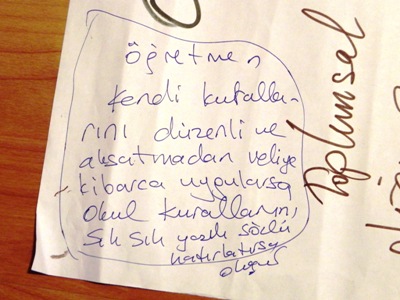 öğretmen
kendi kuralla-
rını düzenli ve
aksatmadan veliye
kibarca uygularsa
okul kurallarını,
sık sık yazılı sözlü
hatırlatırsa
Toplumsal